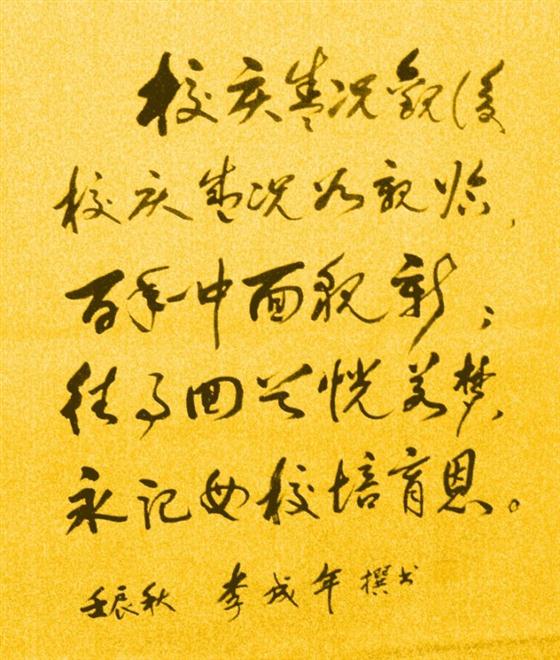 校庆盛况观後
校庆盛况如亲临，
百年中面貌新；
往事回首恍若梦，
永记母校培育恩。
壬辰秋 李成年撰书